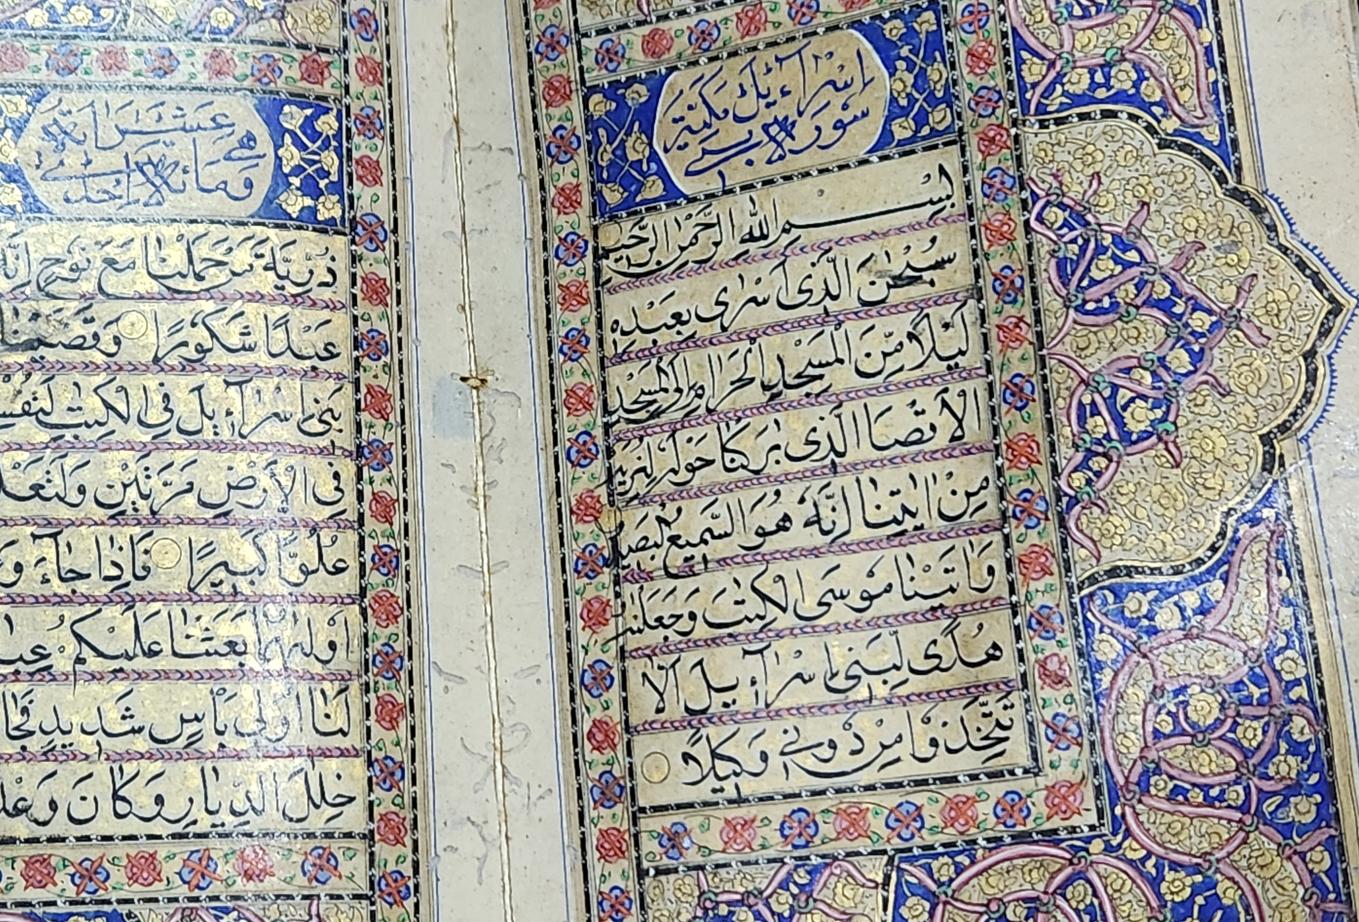 سورة بنی
اسرآءيل مكية
بسم الله الرحمن الرحيم
سُبْحٰنَ الَّذِی اَسْرٰی بِعَبْدِهٖ
لَيْلًا مِّنَ الْمَسْجِدِ الْحَرَامِ اِلَی الْمَسْجِدِ
الْاَقْصَا الَّذِی بٰرَكْنَا حَوْلَهٗ لِنُرِيَهٗ
مِنْ اٰيٰتِنَا اِنَّهٗ هُوَ السَّمِيعُ الْبَصِيرُ
وَاٰتَيْنَا مُوسَی الْكِتٰبَ وَجَعَلْنٰهُ
هُدًی لِّبَنِی اِسْرَآءِيلَ اَلَّا
تَتَّخِذُوا مِنْ دُونِی وَكِيلًا
وهی مائة
عشر اية
ذُرِّيَّةَ مَنْ حَمَلْنَا مَعَ نُوحٍ اِنَّهٗ
عَبْدًا شَكُورًا وَقَضَيْنَا
بَنِی اِسْرَآءِيلَ فِی الْكِتٰبِ لَتُفْسِ
فِی الْاَرْضِ مَرَّتَيْنِ وَلَتَعْلُ
عُلُوًّا كَبِيرًا فَاِذَا جَآءَ وَ
اُولٰهُمَا بَعَثْنَا عَلَيْكُمْ عِبَا
لَنَا اُولِی بَاْسٍ شَدِيدٍ فَجَا
خِلٰلَ الدِّيَارِ وَكَانَ وَعْد